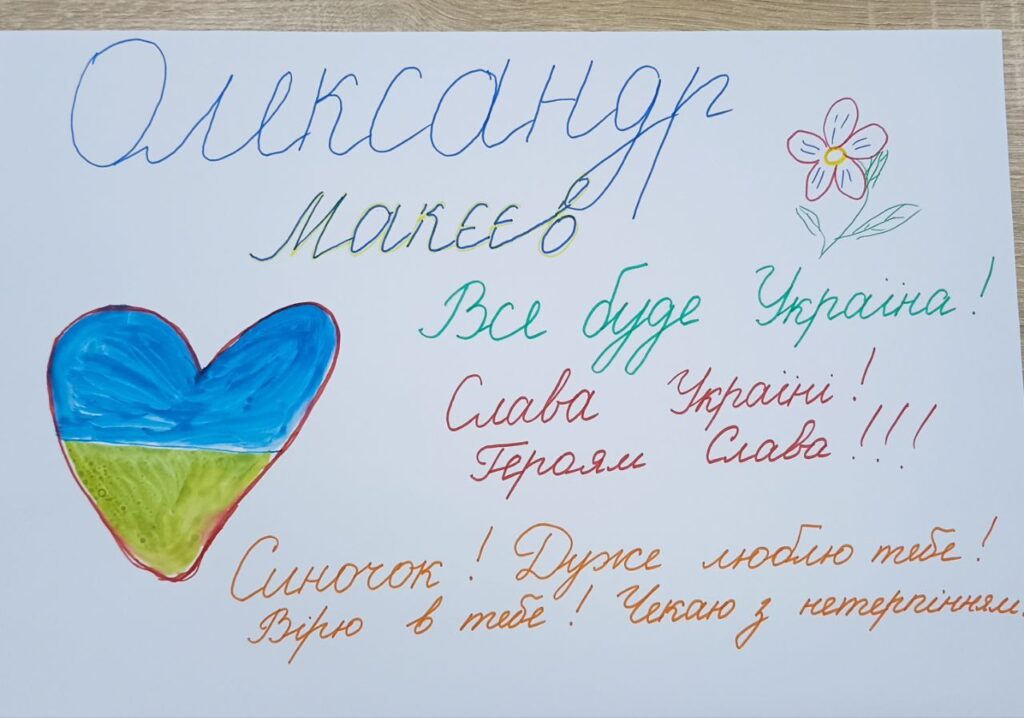 Олександр
Макєєв
Все буде Україна!
Слава Україні!
Героям Слава!!!
Синочок! Дуже люблю тебе!
Вірю в тебе! Чекаю з нетерпінням!